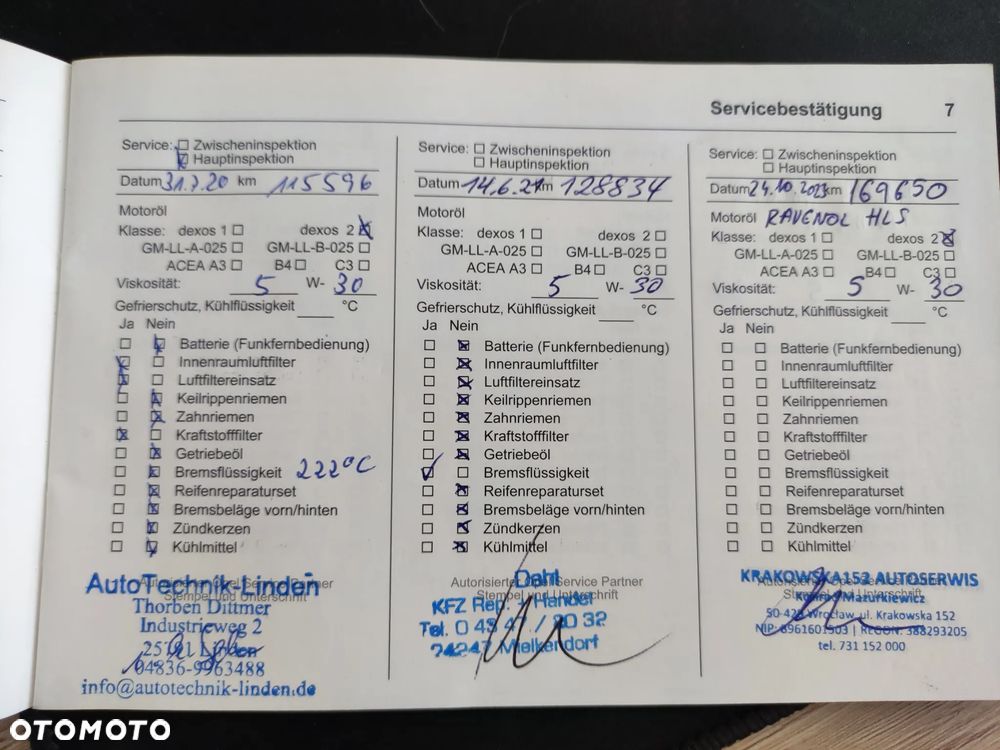 Servicebestätigung 7
Service: Zwischeninspektion
Hauptinspektion
Datum 31.7.20 km 115596
Motoröl
Klasse: dexos 1 dexos 2
GM-LL-A-025 GM-LL-B-025
ACEA A3 B4 C3
Viskosität: 5 W- 30
Gefrierschutz, Kühlflüssigkeit °C
Ja Nein
Batterie (Funkfernbedienung)
Innenraumluftfilter
Luftfiltereinsatz
Keilrippenriemen
Zahnriemen
Kraftstofffilter
Getriebeöl
Bremsflüssigkeit 222°C
Reifenreparaturset
Bremsbeläge vorn/hinten
Zündkerzen
Kühlmittel
Autorisierter Opel Service Partner
Stempel und Unterschrift
AutoTechnik-Linden
Thorben Dittmer
Industrieweg 2
Linden
04836-9963488
info@autotechnik-linden.de
Service: Zwischeninspektion
Hauptinspektion
Datum 14.6.21 km 128834
Motoröl
Klasse: dexos 1 dexos 2
GM-LL-A-025 GM-LL-B-025
ACEA A3 B4 C3
Viskosität: 5 W- 30
Gefrierschutz, Kühlflüssigkeit °C
Ja Nein
Batterie (Funkfernbedienung)
Innenraumluftfilter
Luftfiltereinsatz
Keilrippenriemen
Zahnriemen
Kraftstofffilter
Getriebeöl
Bremsflüssigkeit
Reifenreparaturset
Bremsbeläge vorn/hinten
Zündkerzen
Kühlmittel
Autorisierter Opel Service Partner
Stempel und Unterschrift
Dahl
KFZ Rep. Handel
Tel. 0 43 47 / 80 32
24247 Mielkendorf
Service: Zwischeninspektion
Hauptinspektion
Datum 24.10.2023 km 169650
Motoröl RAVENOL HLS
Klasse: dexos 1 dexos 2
GM-LL-A-025 GM-LL-B-025
ACEA A3 B4 C3
Viskosität: 5 W- 30
Gefrierschutz, Kühlflüssigkeit °C
Ja Nein
Batterie (Funkfernbedienung)
Innenraumluftfilter
Luftfiltereinsatz
Keilrippenriemen
Zahnriemen
Kraftstofffilter
Getriebeöl
Bremsflüssigkeit
Reifenreparaturset
Bremsbeläge vorn/hinten
Zündkerzen
Kühlmittel
KRAKOWSKA152 AUTOSERWIS
Mazurkiewicz
Wrocław, ul. Krakowska 152
NIP: 8961601503 | REGON: 388293205
tel. 731 152 000
OTOMOTO